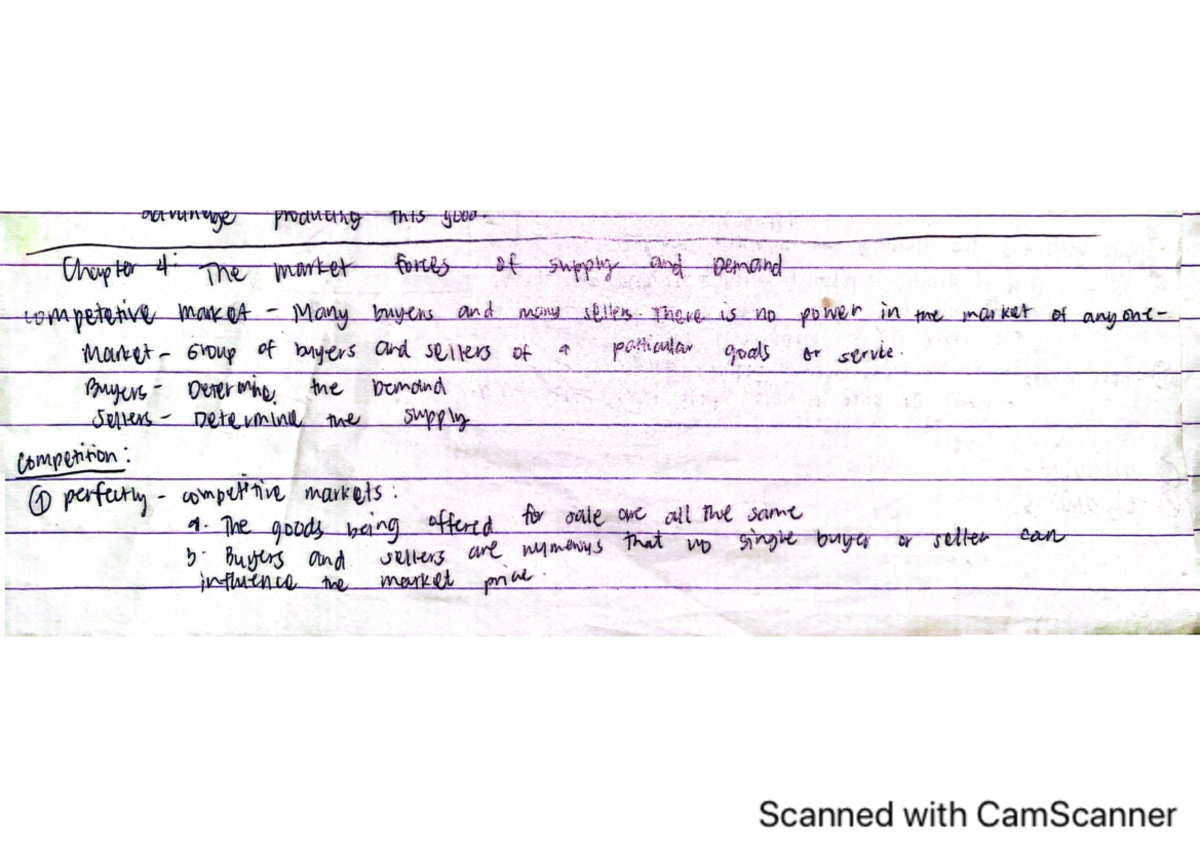 advantage producing this good.
Chapter 4: The market forces of supply and Demand
competetive market - Many buyers and many sellers. There is no power in the market of anyone-
Market - Group of buyers and sellers of a particular goods or service.
Buyers - Determine the Demand
Sellers - Determine the supply
Competition:
① perfectly - competitive markets:
a. The goods being offered for sale are all the same
b. Buyers and sellers are numerous that no single buyer or seller can
influence the market price.
Scanned with CamScanner